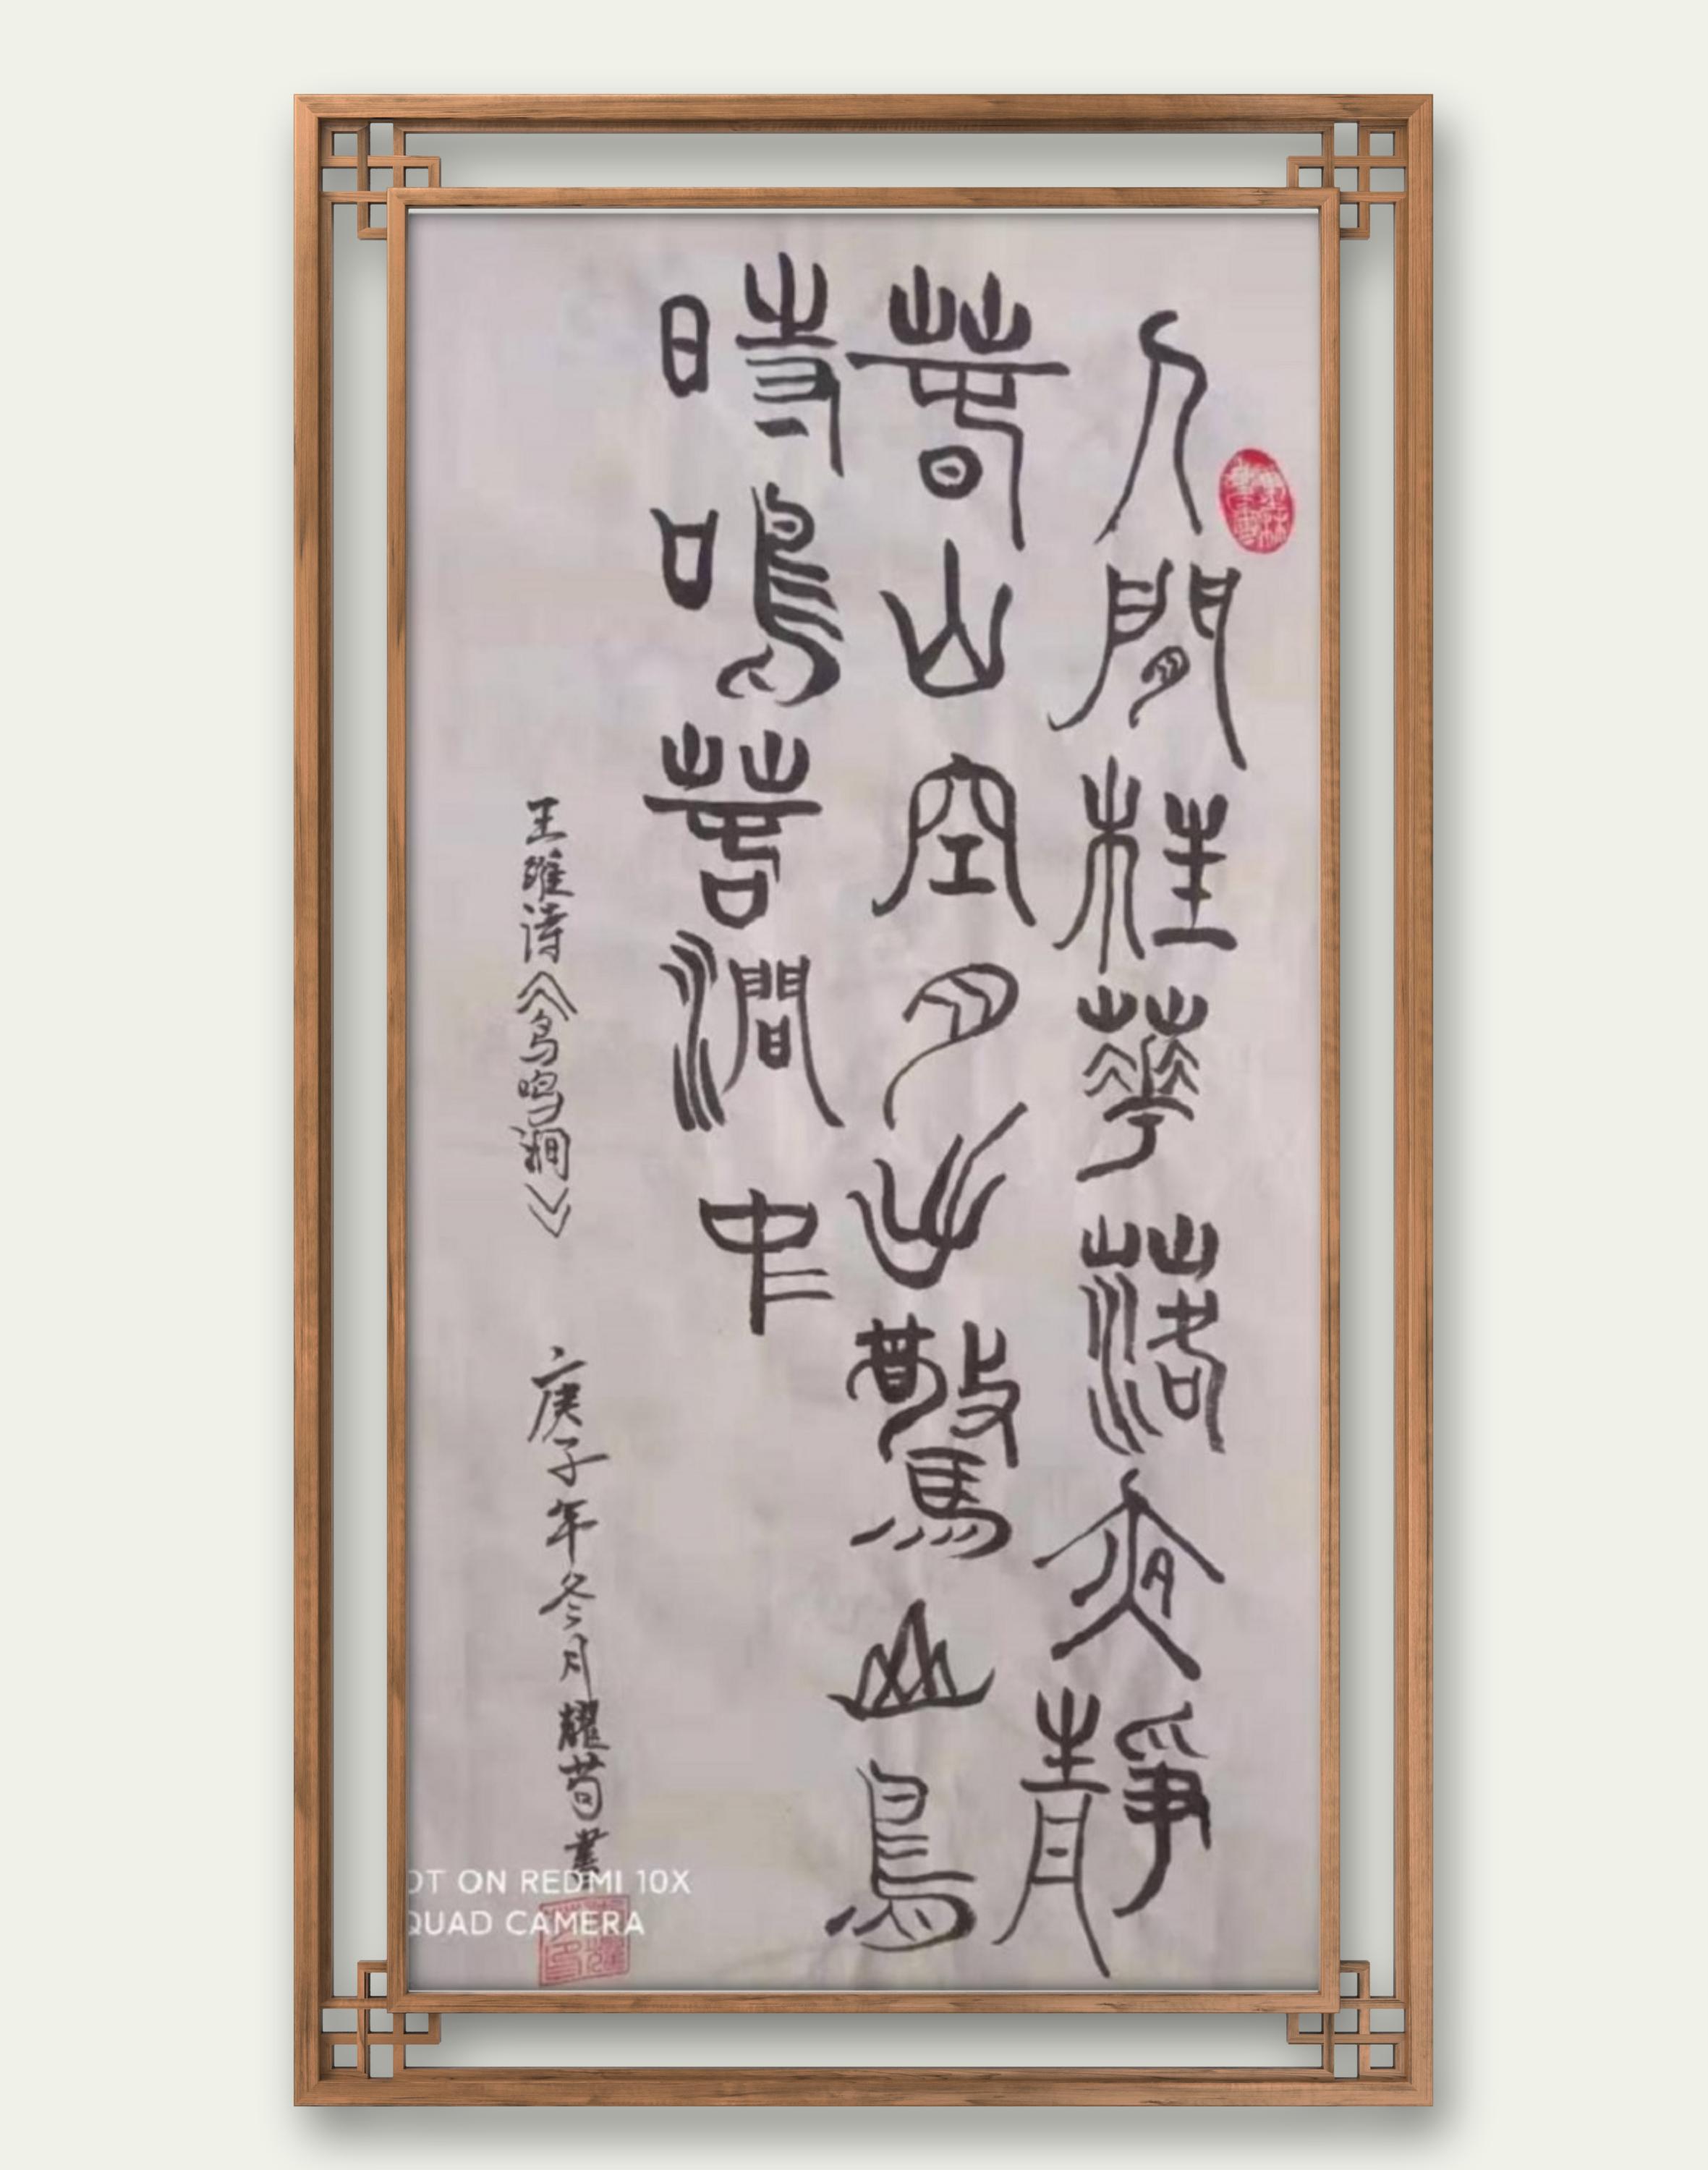 人閒桂華落夜靜
春山空月出驚山鳥
時鳴春澗中
王維诗《鸟鸣澗》 庚子年冬月耀荀書
OT ON REDMI 10X
QUAD CAMERA